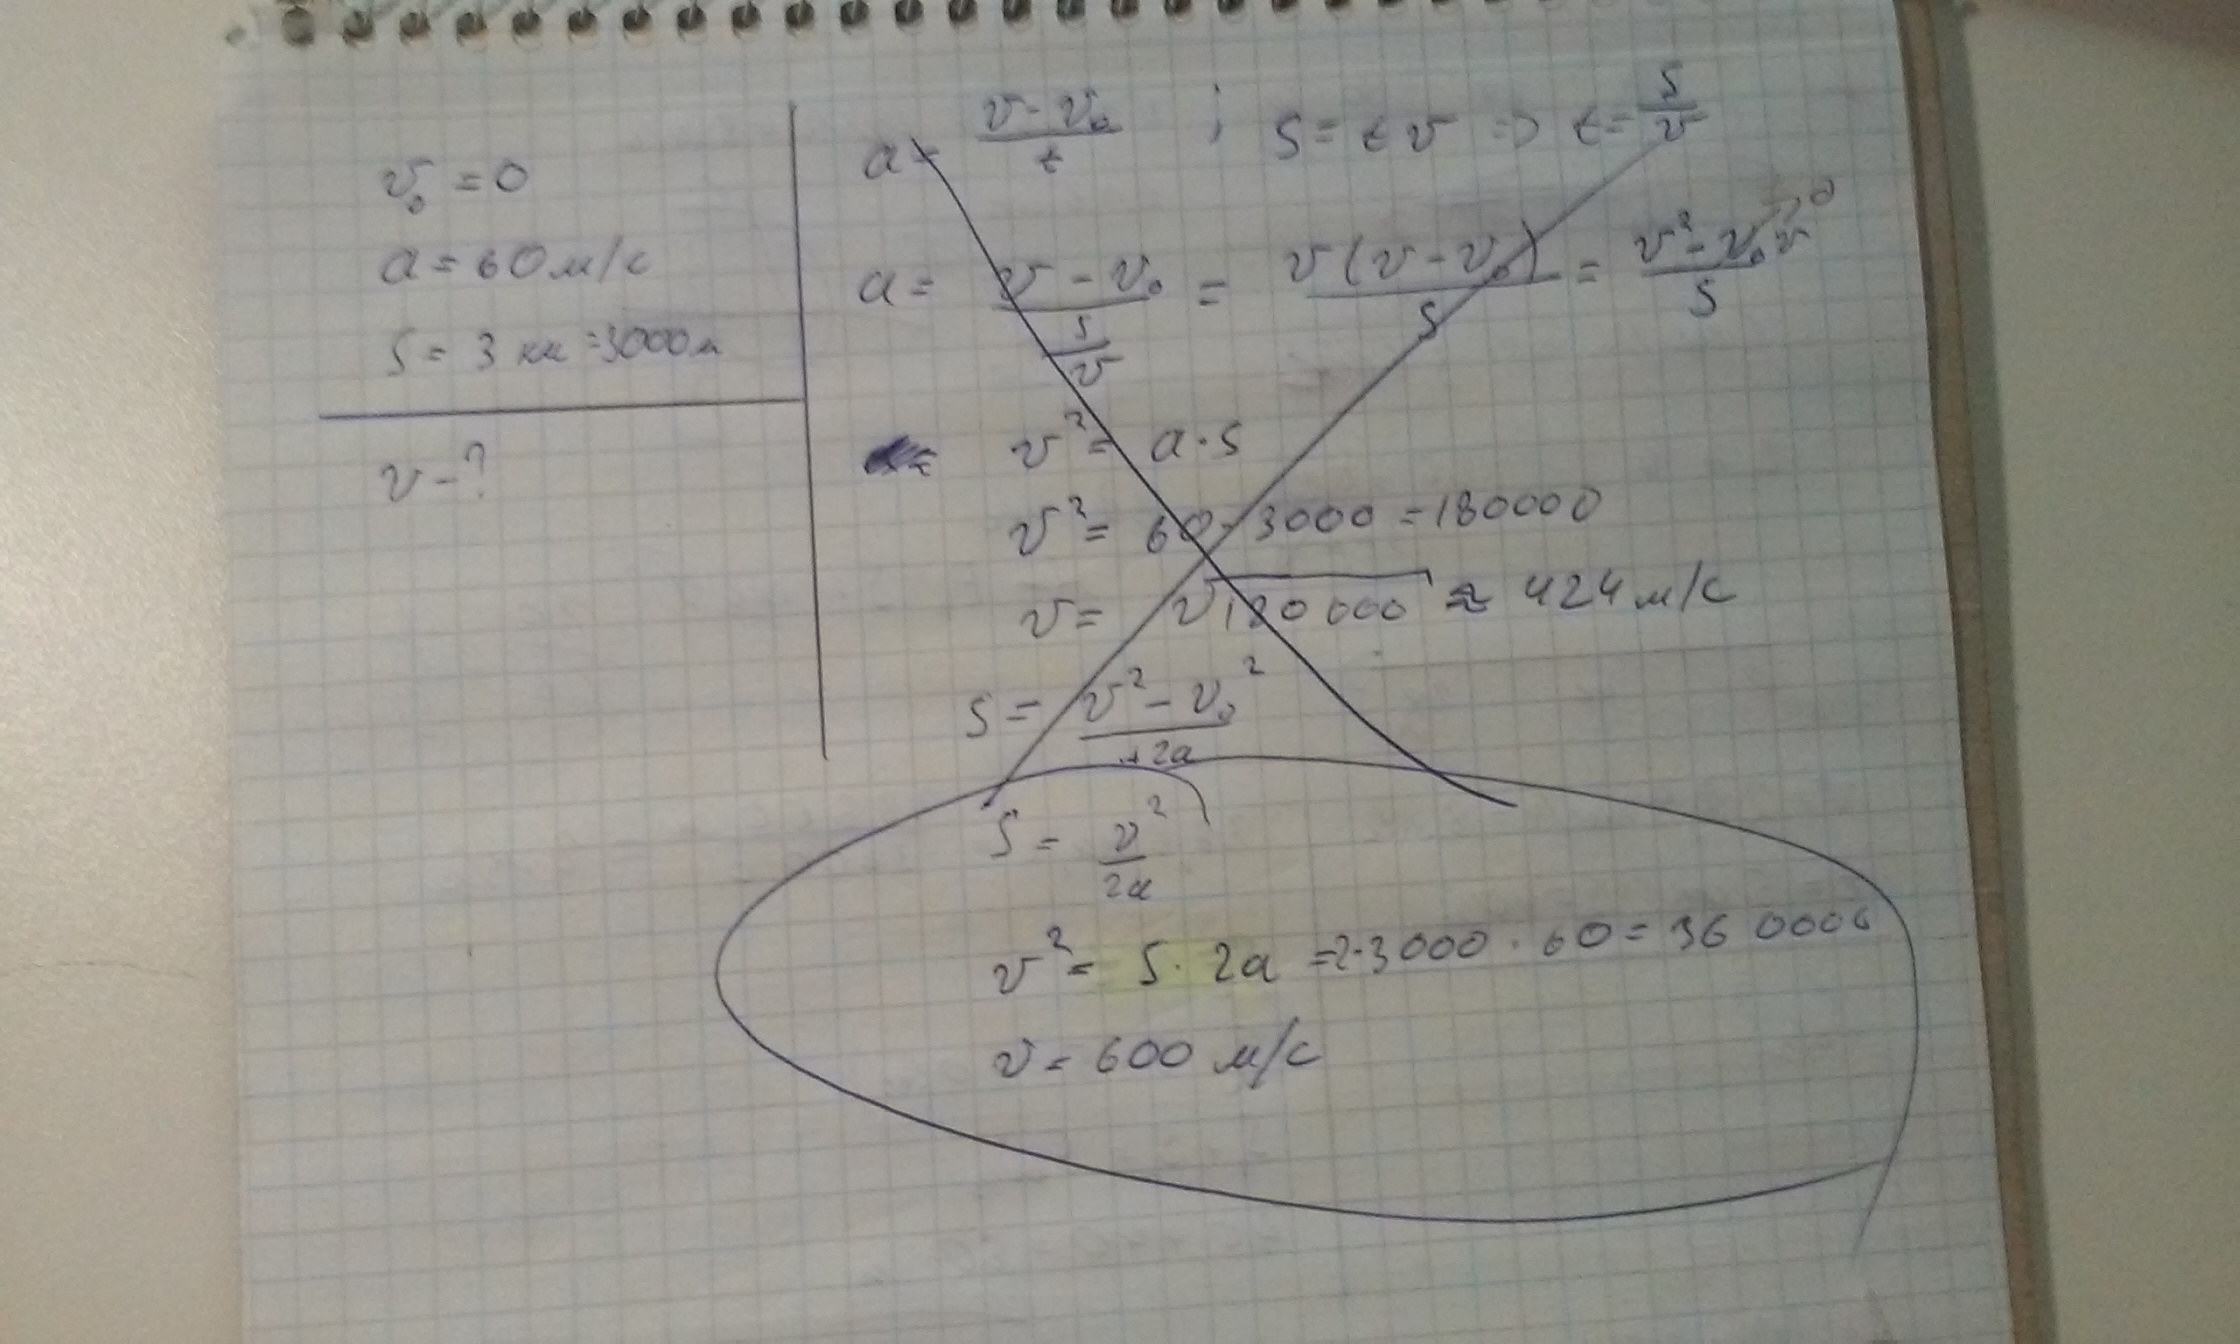 v₀ = 0
a = 60 м/с
S = 3 км = 3000 м
v - ?
a = (v - v₀)/t ; S = t v => t = S/v
a = (v - v₀)/(S/v) = v(v - v₀)/S = (v² - v₀v)/S → 0
v² = a · S
v² = 60 · 3000 = 180000
v = √180000 ≈ 424 м/с
S = (v² - v₀²)/+2a
S = v²/2a
v² = S · 2a = 2·3000 · 60 = 360000
v = 600 м/с